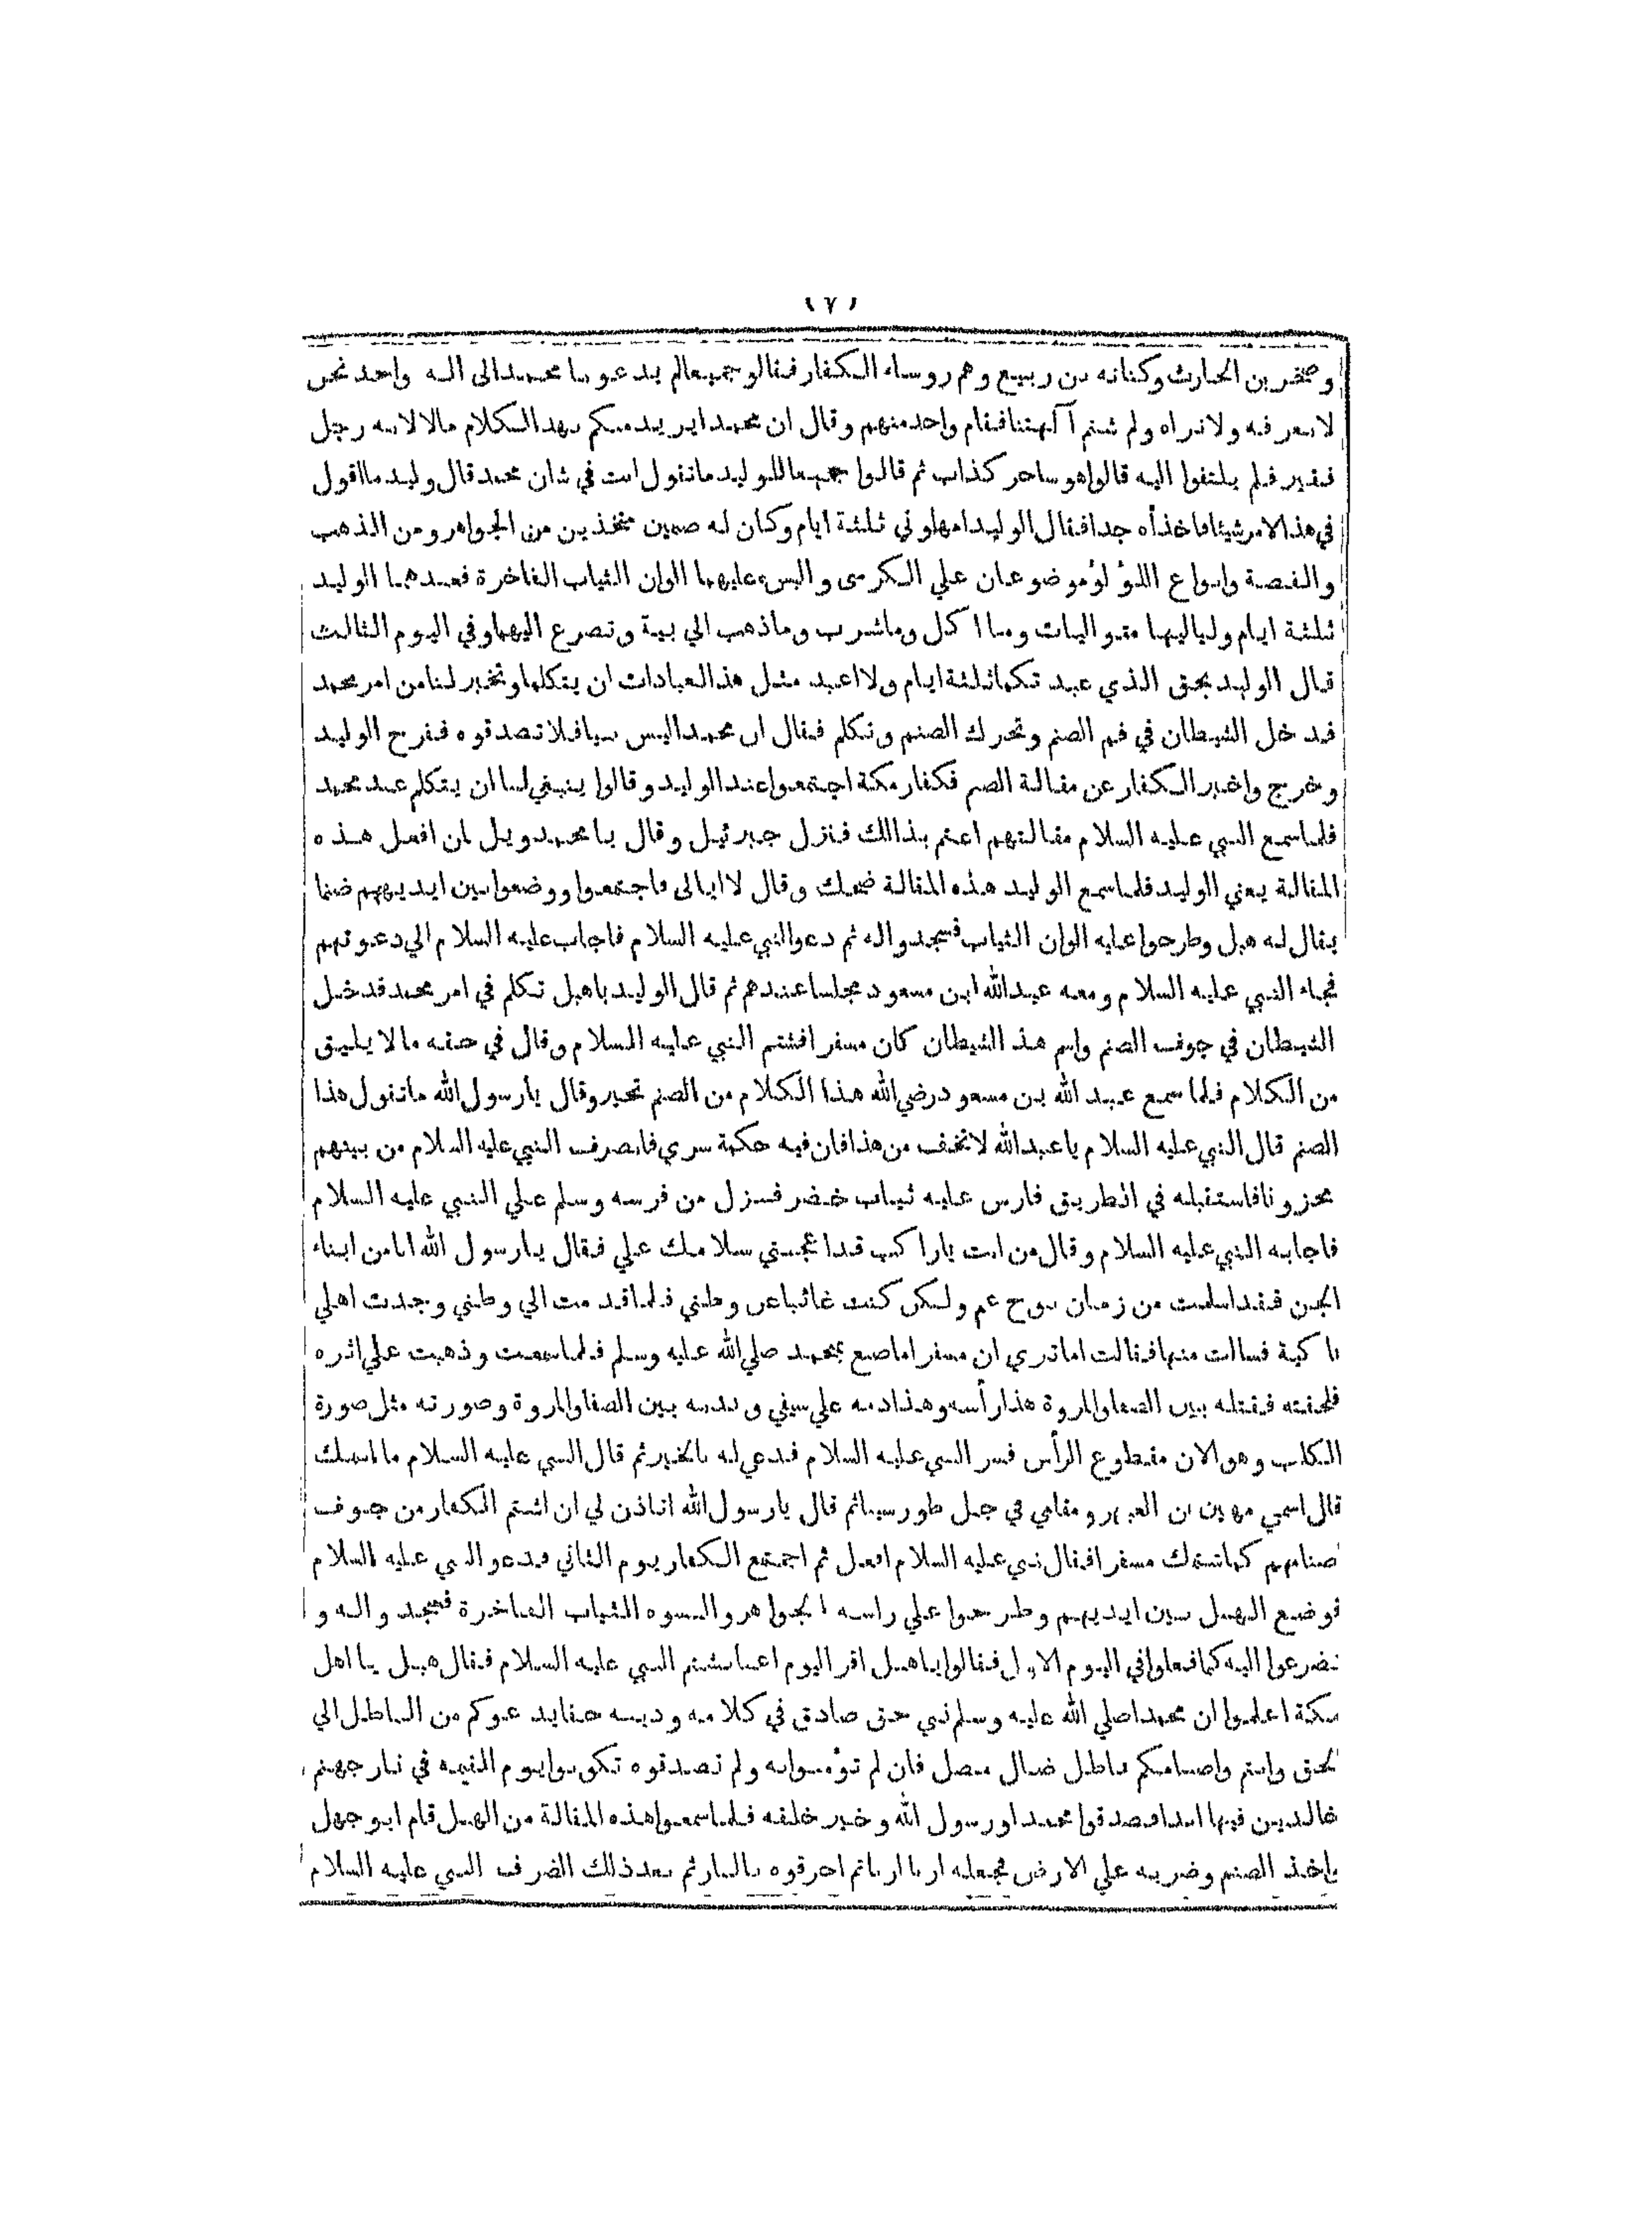 ١٧١
وصخر بن الحارث وكنانه بن ربيع وهم روساء الكفار فقالو جميعالم يدعونا محمدالى اله واحد نحن
لانعرفه ولانراه ولم شتم آلهتنافقام واحدمنهم وقال ان محمدايريدمنكم بهدالكلام مالالانه رجل
فقير فلم يلتفوا اليه قالواهوساحر كذاب ثم قالوا جميعاللوليدماتقول انت في شان محمدقال وليدمااقول
في هذالامرشيئافاخذأه جدافقال الوليدامهلوني ثلثة ايام وكان له صنمين متخذين من الجواهرومن الذهب
والفضة وانواع اللؤلؤموضوعان علي الكرسى والبس عليهما الوان الثياب الفاخرة فعبدهما الوليد
ثلثة ايام ولياليها متواليات وما اكل وماشرب وماذهب الي بيته وتضرع اليهماوفي اليوم الثالث
قال الوليدبحق الذي عبدتكماثلثةايام ولااعبد مثل هذالعبادات ان يتكلماوتخبرلنامن امرمحمد
فدخل الشيطان في فم الصنم وتحرك الصنم وتكلم فقال ان محمداليس نبيافلاتصدقوه ففرح الوليد
وخرج واخبرالكفارعن مقالة الصنم فكفارمكة اجتمعواعندالوليدوقالوا ينبغي لناان يتكلم عندمحمد
فلماسمع النبي عليه السلام مقالتهم اغتم بذالك فنزل جبرئيل وقال يامحمدويل لمن افعل هذه
المقالة يعني الوليدفلماسمع الوليد هذه المقالة ضحك وقال لاابالى فاجتمعوا ووضعوابين ايديهم ضنما
يقال له هبل وطرحواعليه الوان الثياب فسجدواله ثم دعوالنبي عليه السلام فاجاب عليه السلام الي دعوتهم
فجاء النبي عليه السلام ومعه عبدالله ابن مسعود مجلساعندهم ثم قال الوليدياهبل تكلم في امرمحمدفدخل
الشيطان في جوف الصنم واسم هذ الشيطان كان مسفرافشتم النبي عليه السلام وقال في حقه مالايليق
من الكلام فلماسمع عبد الله بن مسعودرضي الله هذا الكلام من الصنم تحيروقال يارسول الله ماتقول هذا
الصنم قال النبي عليه السلام ياعبدالله لاتخف من هذافان فيه حكمة سري فانصرف النبي عليه السلام من بينهم
محزونافاستقبله في الطريق فارس عليه ثياب خضر فنزل من فرسه وسلم علي النبي عليه السلام
فاجابه النبي عليه السلام وقال من انت ياراكب قداعجبتني سلامك علي فقال يارسول الله انامن ابناء
الجن فقداسلمت من زمان نوح عم ولكن كنت غائباعن وطني فلماقدمت الي وطني وجدت اهلي
باكية فسالت منهافقالت اماتدري ان مسفراماصنع بمحمد صلي الله عليه وسلم فلماسمعت وذهبت علي اثره
فلحقته فقتله بين الصفاوالمروة هذارأسه وهذادمه علي سيفي وبدنه بين الصفاوالمروة وصورته مثل صورة
الكلب وهوالان مقطوع الرأس فسرالنبي عليه السلام فدعي له بالخيرثم قال النبي عليه السلام مااسمك
قال اسمي مهين بن العبهر ومقامي في جبل طورسيناثم قال يارسول الله اتاذن لي ان اشتم الكفارمن جوف
اصنامهم كماشتمك مسفرافقال نبي عليه السلام افعل ثم اجتمع الكفاريوم الثاني فدعوالنبي عليه السلام
فوضع الهبل بين ايديهم وطرحوا علي راسه الجواهر والبسوه الثياب الفاخرة فسجد واله و
تضرعوا اليه كمافعلوافي اليوم الاول فقالواياهبل اقر اليوم اعينابشتم النبي عليه السلام فقال هبل يا اهل
مكة اعلموا ان محمداصلي الله عليه وسلم نبي حق صادق في كلامه ودينه حقايدعوكم من الباطل الي
الحق وانتم واصنامكم باطل ضال مضل فان لم تؤمنوابه ولم تصدقوه تكونوايوم القيمه في نارجهنم
خالدين فيها ابدافصدقوا محمدا ورسول الله وخير خلقه فلماسمعواهذه المقالة من الهبل قام ابوجهل
ياخذ الصنم وضربه علي الارض فجعله اربا ارباثم احرقوه بالنارثم بعدذلك الضرف النبي عليه السلام